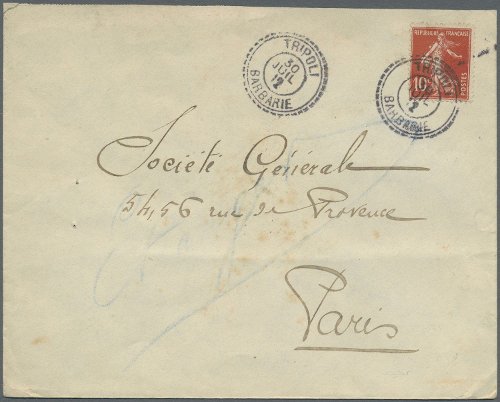 TRIPOLI
30
JUIL
12
BARBARIE
REPUBLIQUE FRANÇAISE
10
POSTES
TRIPOLI
BARBARIE
Société Générale
54,56 rue de Provence
Paris